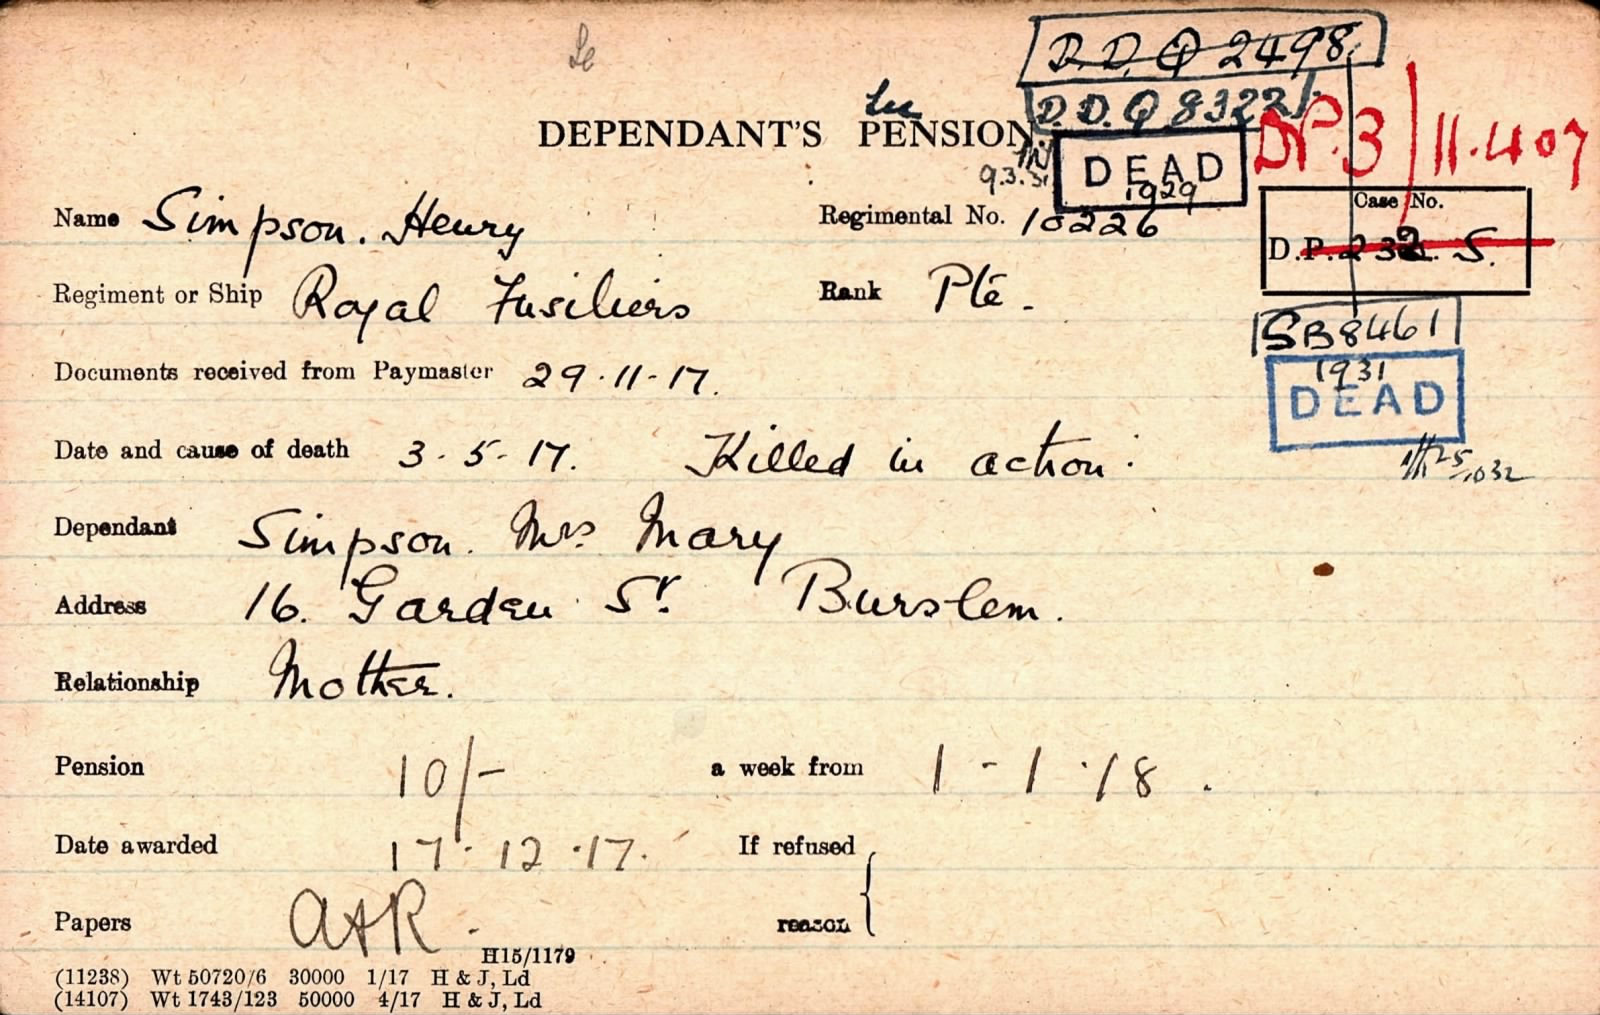 D.D.Q 2498
D.D.Q 8322/
DEPENDANT'S PENSION.
DP.3/11.407
9.3.31
DEAD
1929
Name Simpson. Henry Regimental No. 10226
Case No.
D.P. 232. S.
Regiment or Ship Royal Fusiliers Rank Pte.
SB8461
1931
DEAD
Documents received from Paymaster 29.11-17.
Date and cause of death 3-5-17. Killed in action.
Dependant Simpson. Mrs Mary
Address 16. Garden St. Burslem.
Relationship Mother.
Pension 10/- a week from 1-1-18.
Date awarded 17.12.17. If refused
reason
Papers
H15/1179
(11238) Wt 50720/6 30000 1/17 H & J, Ld
(14107) Wt 1743/123 50000 4/17 H & J, Ld